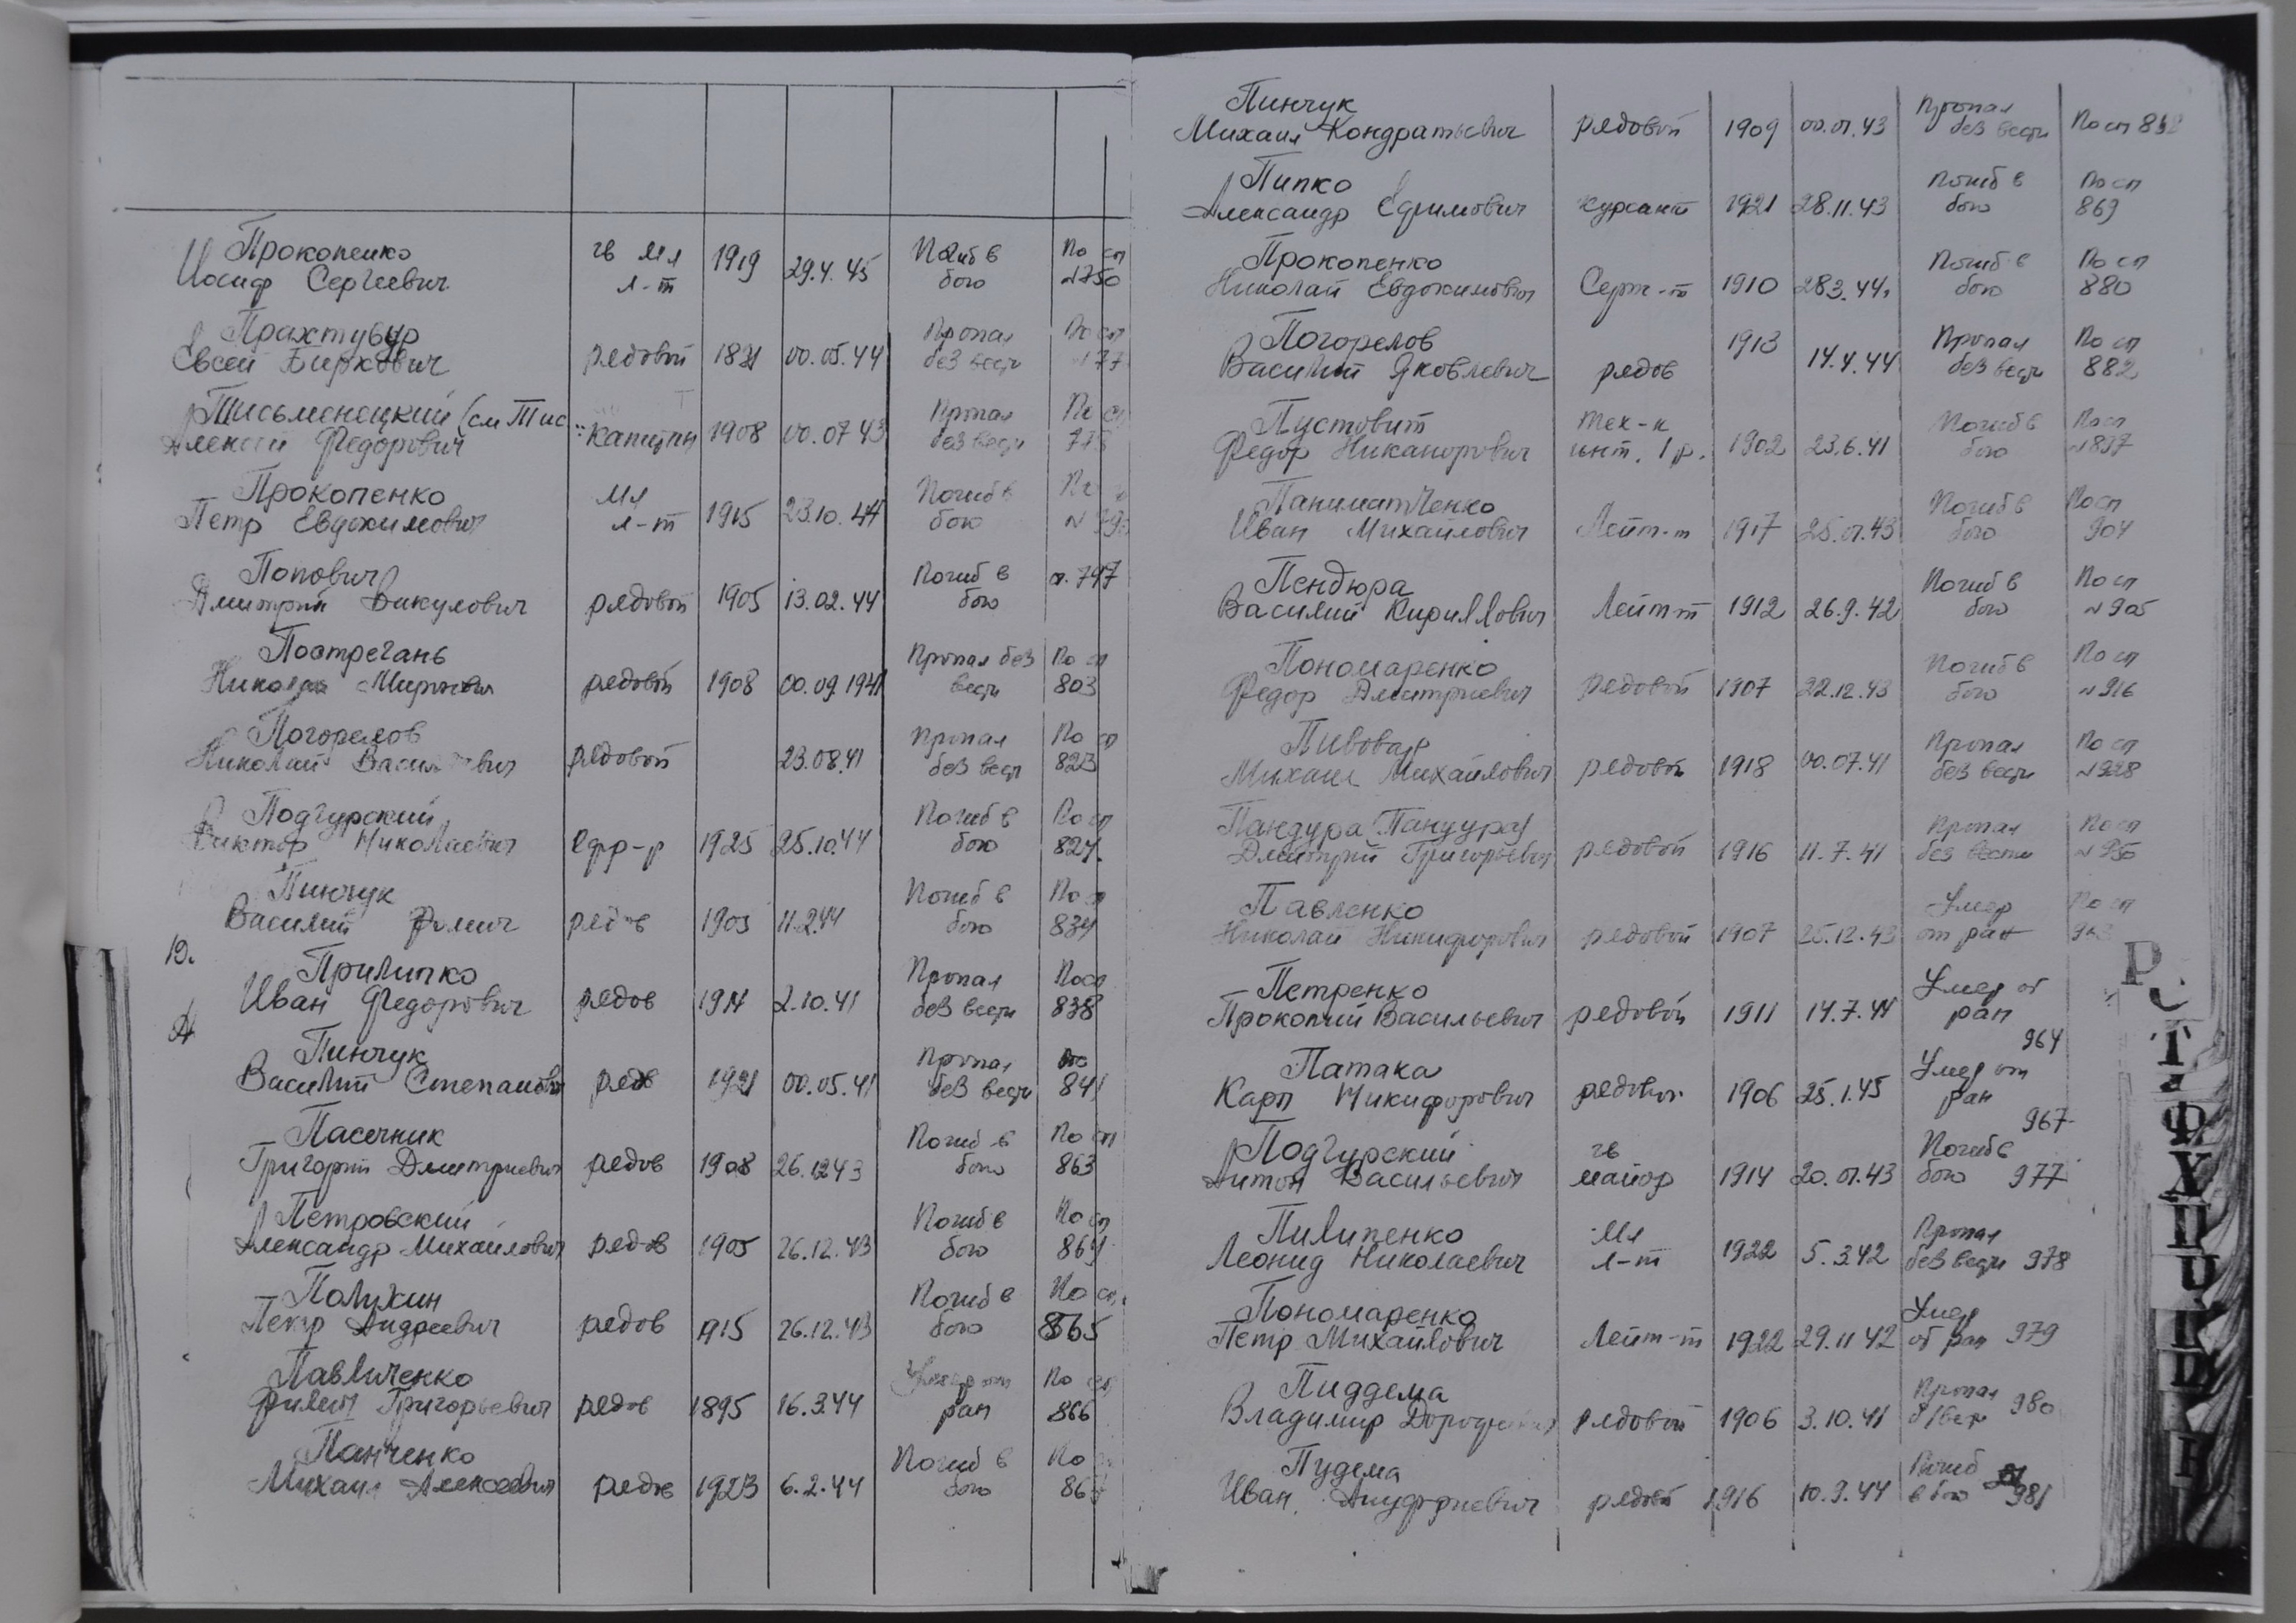 Прокопенко гв Мл 1919 29.4.45 Погиб в По сп
Иосиф Сергеевич л-т бою №750
Прахтубур Пропал По сп
Евсей Биркович рядовой 00.05.44 без вести
Письменецкий (см Тис Пропал
Алексей Федорович капитан 1908 00.07 43 без вести 778
Прокопенко Мл Погиб в
Петр Евдокимович л-т 1915 23.10.44 бою
Попович Погиб в п. 797
Дмитрий Викулович рядовой 1905 13.02.44 бою
Постречань Пропал без По сп
Николай рядовой 1908 00.09.1941 вести 803
Погорелов Пропал По сп
Николай Васильевич рядовой 23.08.41 без вест 823
Подгурский Погиб в По сп
Виктор Николаевич Ефр-р 1925 25.10.44 бою 827.
Пинчук Погиб в По сп
Василий рядов 1903 11.2.44 бою 834
Прилипко Пропал По сп
Иван Федорович рядов 1914 2.10.41 без вести 838
Пинчук Пропал По
Василий Степанович ряд 1921 00.05.41 без вести 841
Пасечник Погиб в По сп
Григорий Дмитриевич рядов 1908 26.12.43 бою 863
Петровский Погиб в По сп
Александр Михайлович рядов 1905 26.12.43 бою 864
Полухин Погиб в По сп.
Петр Андреевич рядов 1915 26.12.43 бою 865
Павличенко Умер от По сп
Филипп Григорьевич рядов 1895 16.3.44 ран 866
Панченко Погиб в По
Михаил Алексеевич рядов 1923 6.2.44 бою
Пинчук Пропал
Михаил Кондратьевич рядовой 1909 00.01.43 без вести По сп
Пипко Погиб в По сп
Александр Ефимович курсант 1921 28.11.43 бою 869
Прокопенко Погиб в По сп
Николай Евдокимович Серж-т 1910 28.3.44. бою 880
Погорелов 1913 Пропал По сп
Василий Яковлевич рядов 14.4.44 без вести 882
Пустовит тех-к Погиб в По сп
Федор Никанорович инт. 1 р. 1902 23.6.41 бою №897
Паниматченко Погиб в По сп
Иван Михайлович Лейт-т 1917 25.01.43 бою 904
Пендюра Погиб в По сп
Василий Кириллович Лейт т 1912 26.9.42 бою №905
Пономаренко Погиб в По сп
Федор Дмитриевич рядовой 1907 22.12.43 бою №916
Пивовар Пропал По сп
Михаил Михайлович рядовой 1918 00.07.41 без вести №928
Пандура (Панцура) Пропал По сп
Дмитрий Григорьевич рядовой 1916 11.7.41 без вести №950
Павленко Умер По сп
Николай Никифорович рядовой 1907 25.12.43 от ран
Петренко Умер от
Прокопий Васильевич рядовой 1911 14.7.44 ран
964
Патака Умер от
Карп Никифорович рядовой 1906 25.1.45 ран
967
Подгурский гв Погиб в
Антон Васильевич майор 1914 20.01.43 бою 977
Пилипенко Мл Пропал
Леонид Николаевич л-т 1922 5.3.42 без вести 978
Пономаренко Умер
Петр Михайлович Лейт-т 1922 29.11 42 от ран 979
Пиддема Пропал 980
Владимир рядовой 1906 3.10.41 б/вест
Пудема Погиб
Иван Ануфриевич рядовой 1916 10.9.44 в бою 981
Р
С
Т
Ф
Х